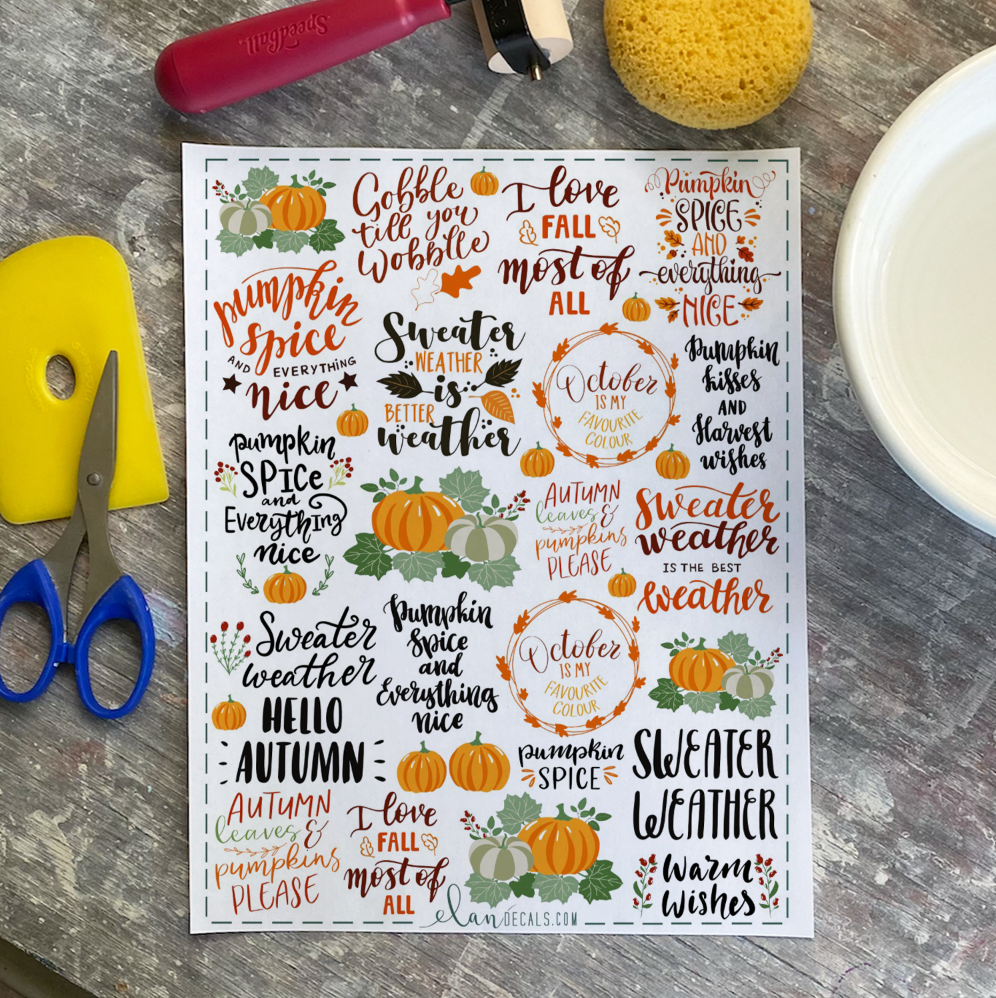 Speedball
Gobble
till you
Wobble
I love
FALL
most of
ALL
Pumpkin
SPICE
AND
everything
NICE
pumpkin
spice
AND EVERYTHING
nice
Sweater
WEATHER
is
BETTER
weather
October
IS MY
FAVOURITE
COLOUR
Pumpkin
kisses
AND
Harvest
wishes
pumpkin
SPICE
and
Everything
nice
AUTUMN
leaves &
pumpkins
PLEASE
Sweater
weather
IS THE BEST
weather
Sweater
weather
Pumpkin
Spice
and
Everything
nice
October
IS MY
FAVOURITE
COLOUR
HELLO
AUTUMN
pumpkin
SPICE
SWEATER
WEATHER
AUTUMN
leaves &
pumpkins
PLEASE
I love
FALL
most of
ALL
Warm
Wishes
elan DECALS.COM